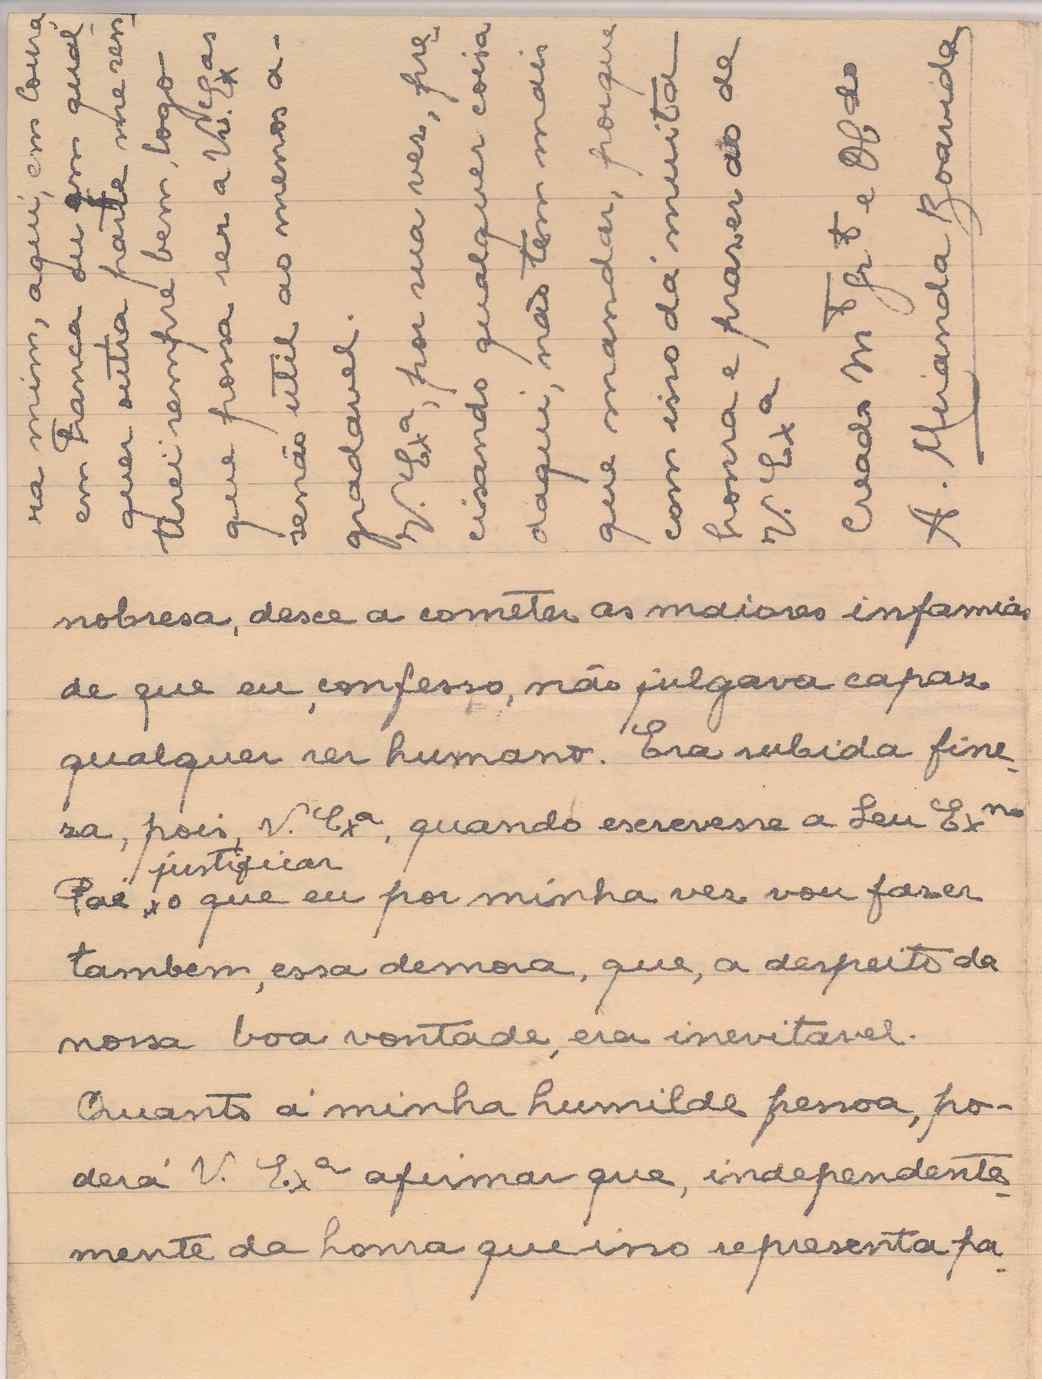 nobresa, desce a cometer as maiores infamias
de que eu, confesso, não julgava capaz
qualquer ser humano. Era subida fine-
za, pois, V. Exª, quando escrevesse a Seu Exmo
justificar
Pai, o que eu por minha vez vou fazer
tambem, essa demora, que, a despeito da
nossa boa vontade, era inevitavel.
Quanto á minha humilde pessoa, po-
derá V. Exª afirmar que, independente-
mente da honra que isso representa pa-
ra mim, aqui, em Coura,
em França ou em qual-
quer outra parte me sen-
tirei sempre bem, logo
que possa ser a V. Exas
senão util ao menos a-
gradavel.
V. Exª, por sua vez, pre-
cisando qualquer coisa
daqui, não tem mais
que mandar, porque
com isso dá muita
honra e prazer ao de
V. Exª
Creado mtº grtº e Obdo
A. Miranda Boavida